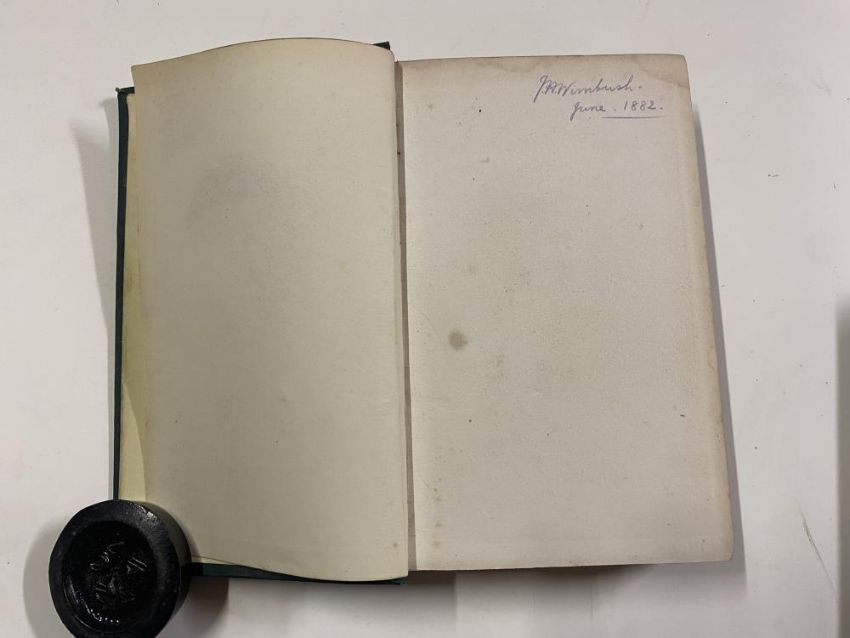 J.A. Wimbush.
June . 1882.